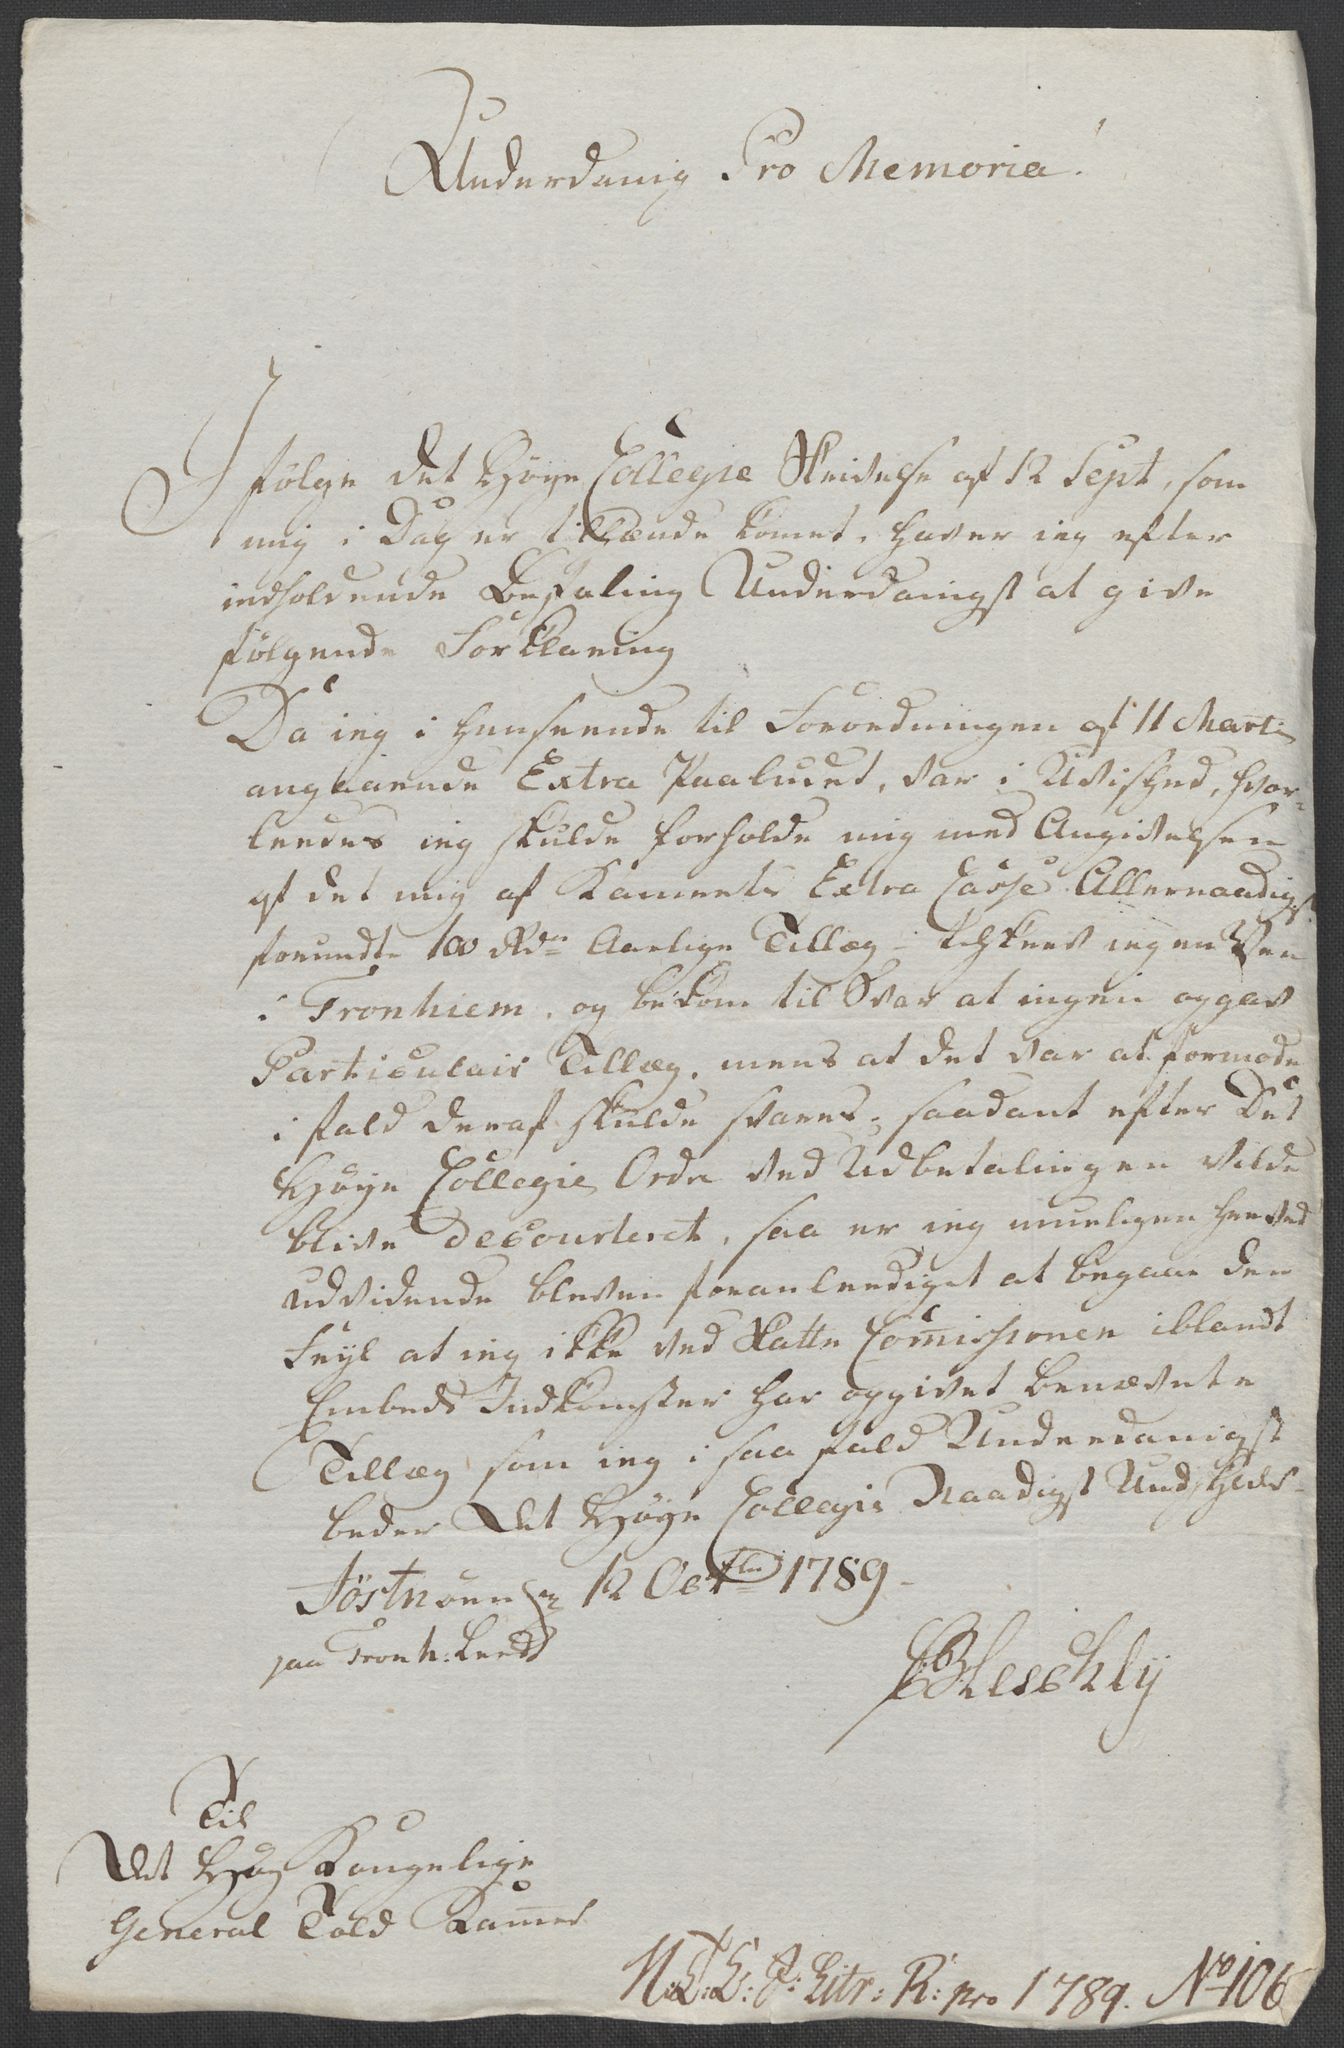 Underdanig Pro Memoria!
Ifølge det Høye Collegie Skrivelse af 12 Sept, som
mig i Dag er tilhænde komet, haver ieg efter
indholdende Befaling Underdanigst at give
følgende Forklaring
Da ieg i henseende til Forordningen af 11 Marti
angaaende Extra Paabudet, var i Uvished, hvor-
leedes ieg skulde forholde mig med Angivelsen
af det mig af Kamerets Extra Casse Allernaadigst
forundte 100 Rdr Aarlige Tillæg - tilskrev ieg en Ven
i Tronhiem, og bekom til Svar at ingen opgav
Particulair Tillæg, mens at det var at formode
i fald deraf skulde svares, saadant efter Det
Høye Collegie Ordre ved Udbetalingen vilde
blive decourteret, saa er ieg mueligen herved
udvidende bleven foranleediget at begaae den
Feyl at ieg ikke ved Skatte Comissionen iblandt
Embeds Indkomster har opgivet benævnte
Tillæg som ieg i saa fald Underdanigst
beder Det Høye Collegie Naadigst Undskylde-
12 Octbr 1789-
paa Tronh: Leedt
Til
Det Høy Kongelige
General Told Kamer
N:T:L: J: Litr: R: pro 1789. No 106